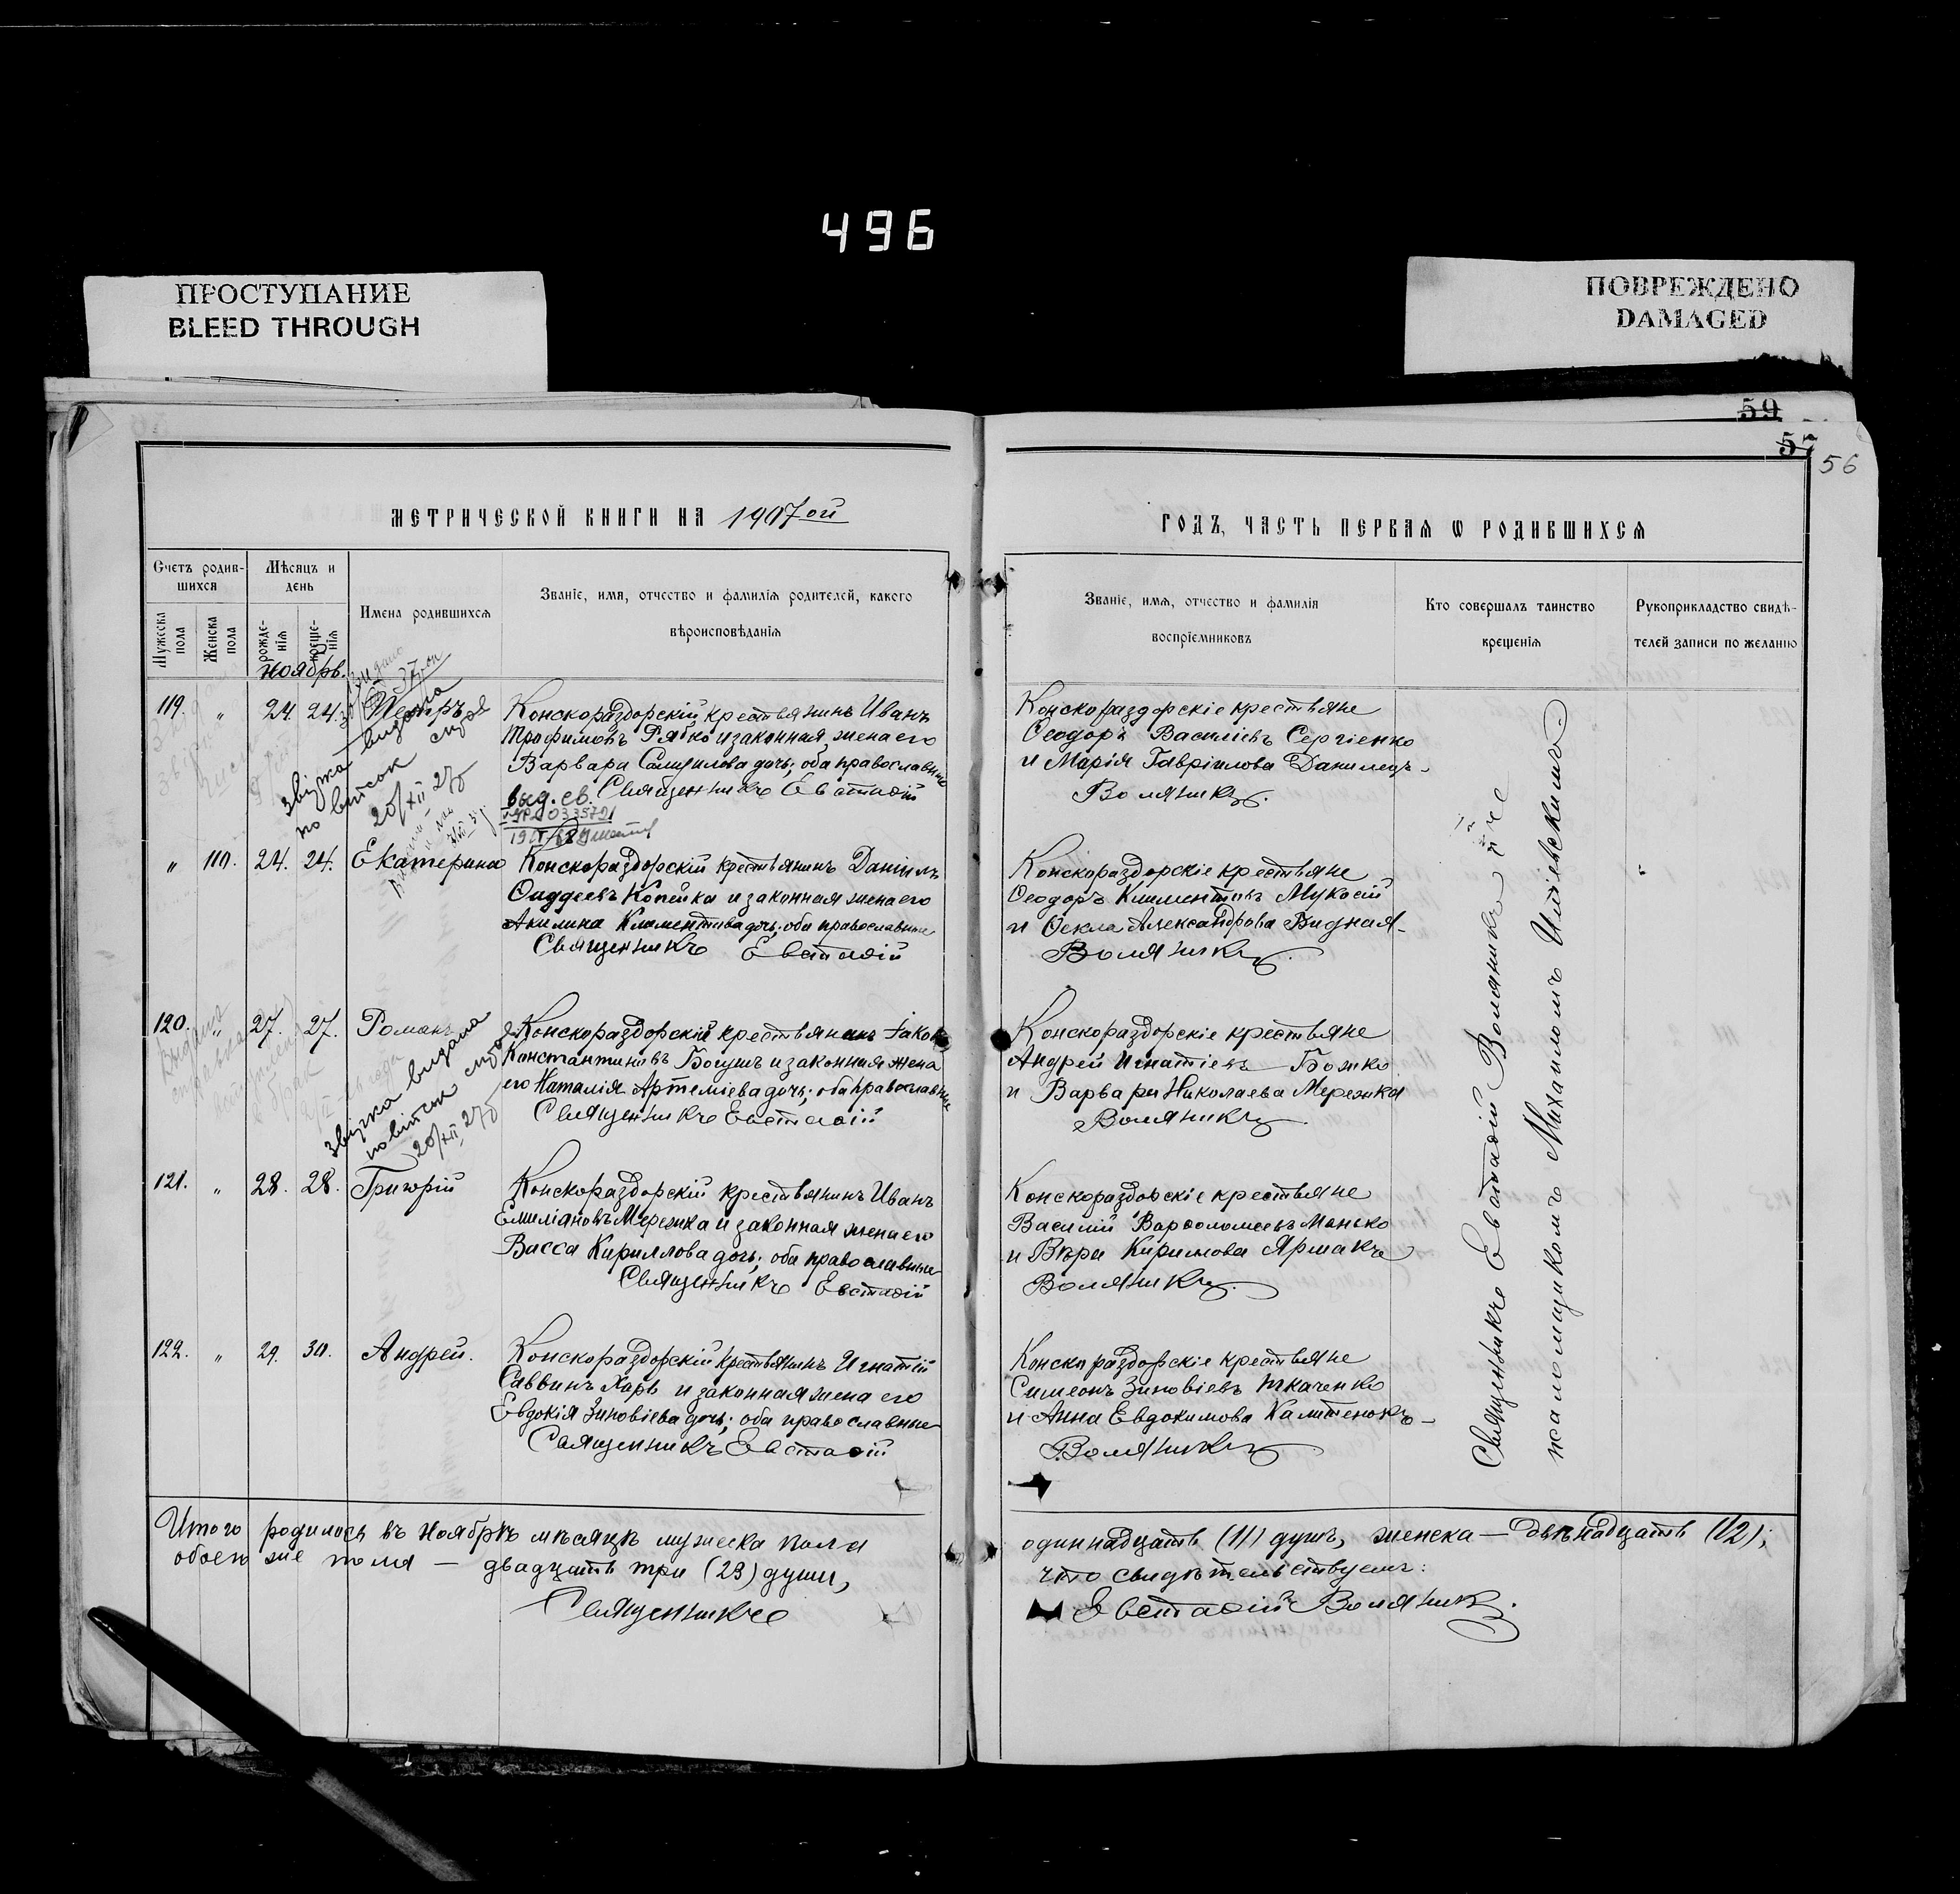 496
ПРОСТУПАНИЕ
BLEED THROUGH
ПОВРЕЖДЕНО
DAMAGED
59
57
56
МЕТРИЧЕСКОЙ КНИГИ НА 1907ой
Счетъ родив-
шихся
Мѣсяцъ и
день
Мужеска
пола
Женска
пола
рожде-
нія
креще-
нія
Имена родившихся
Званіе, имя, отчество и фамилія родителей, какого
вѣроисповѣданія
ноябрь.
119. " 24. 24. Петръ Конскораздорскій крестьянинъ Иванъ
Трофимовъ Рябко и законная жена его
Варвара Самуилова дочь; оба православные
Священникъ Евстафій
звізка видана
по вiток
20/XII 27
выд. св.
" 110. 24. 24. Екатерина Конскораздорскій крестьянинъ Даніилъ
Фаддеевъ Копейка и законная жена его
Акилина Климентова дочь; оба православные
Священникъ Евстафій
120. " 27. 27. Романъ Конскораздорскій крестьянинъ Іаковъ
Константиновъ Богушъ и законная жена
его Наталія Артеміева дочь; оба православные
Священникъ Евстафій
звізка видана
по вiток
20/XII 27
121. " 28. 28. Григорій Конскораздорскій крестьянинъ Иванъ
Емиліановъ Мережка и законная жена его
Васса Кириллова дочь; оба православные
Священникъ Евстафій
122. " 29. 30. Андрей. Конскораздорскій крестьянинъ Игнатій
Саввинъ Харь и законная жена его
Евдокія Зиновіева дочь; оба православные
Священникъ Евстафій
Итого родилось въ ноябрѣ мѣсяцѣ мужеска пола
обоего же пола — двадцать три (23) души,
Священникъ
ГОДЪ, ЧАСТЬ ПЕРВАЯ Ѡ РОДИВШИХСЯ
Званіе, имя, отчество и фамилія
воспріемниковъ
Кто совершалъ таинство
крещенія
Рукоприкладство свидѣ-
телей записи по желанію
Конскораздорскіе крестьяне
Ѳеодоръ Василіевъ Сергіенко
и Марія Гавріилова Данилецъ
Воляникъ.
Конскораздорскіе крестьяне
Ѳеодоръ Климентовъ Мукосій
и Ѳекла Александрова Видная
Воляникъ.
Конскораздорскіе крестьяне
Андрей Игнатіевъ Божко
и Варвара Николаева Мережка
Воляникъ
Конскораздорскіе крестьяне
Василій Варѳоломеевъ Манько
и Вѣра Кириллова Ярмакъ
Воляникъ.
Конскораздорскіе крестьяне
Симеонъ Зиновіевъ Ткаченко
и Анна Евдокимова Калитенокъ
Воляникъ
Священникъ Евстафій Воляникъ съ
псаломщикомъ Михаиломъ
одиннадцать (11) душъ, женска — двѣнадцать (12);
что свидѣтельствуемъ:
Евстафій Воляникъ.